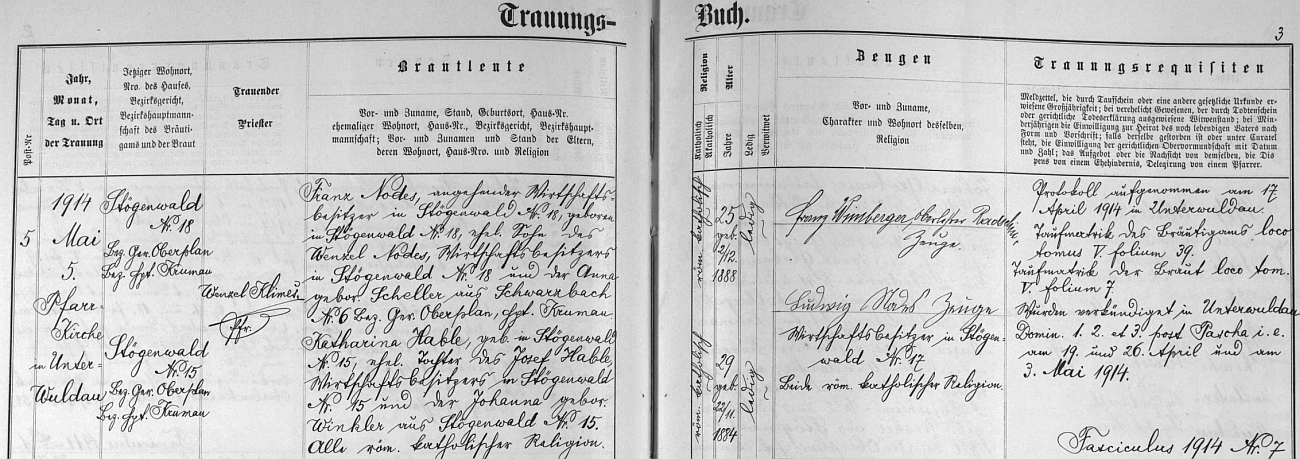 Trauungs-Buch.
3
Post-Nr
Jahr,
Monat,
Tag u. Ort
der Trauung
Jetziger Wohnort,
Nro. des Hauses,
Bezirksgericht,
Bezirkshauptmann-
schaft des Bräuti-
gams und der Braut
Trauender
Priester
Brautleute
Vor- und Zuname, Stand, Geburtsort, Haus-Nr.
ehemaliger Wohnort, Haus-Nr., Bezirksgericht, Bezirkshaupt-
mannschaft; Vor- und Zunamen und Stand der Eltern,
deren Wohnort, Haus-Nro. und Religion
Religion
Katholisch
Akatholisch
Alter
Jahre
Ledig
Verwitwet
Zeugen
Vor- und Zuname,
Charakter und Wohnort desselben,
Religion
Trauungsrequisiten
Meldzettel, die durch Taufschein oder eine andere gesetzliche Urkunde er-
wiesene Großjährigkeit; bei verehelicht Gewesenen, der durch Todtenschein
oder gerichtliche Todeserklärung ausgewiesene Witwenstand; bei Min-
derjährigen die Einwilligung zur Heirat des noch lebendigen Vaters nach
Form und Vorschrift; falls derselbe gestorben ist oder unter Curatel
steht, die Einwilligung der gerichtlichen Obervormundschaft mit Datum
und Zahl; das Aufgebot oder die Nachsicht von demselben, die Dis
pens von einem Ehehindernis, Delegirung von einem Pfarrer.
5
1914
Mai
5.
Pfarr-
Kirche
in Unter-
Wuldau
Stögenwald
Nr. 18
Bez. Ger. Oberplan
Bez. Hpt. Kruman
Stögenwald
Nr. 15
Bez. Ger. Oberplan
Bez. Hpt. Kruman
Wenzel Klimeš
Pfr.
Franz Nodes, angehender Wirtschafts-
besitzer in Stögenwald Nr. 18, geboren
in Stögenwald Nr. 18, ehel. Sohn des
Wenzel Nodes, Wirtschaftsbesitzers
in Stögenwald Nr. 18 und der Anna
gebor. Scheller aus Schwarzbach
Nr. 6 Bez. Ger. Oberplan, Hpt. Kruman
Katharina Hable, geb. in Stögenwald
Nr. 15, ehel. Tochter des Josef Hable,
Wirtschaftsbesitzers in Stögenwald
Nr. 15 und der Johanna gebor.
Winkler aus Stögenwald Nr. 15.
Alle röm. katholischer Religion.
röm. katholisch
25
geb.
2/12.
1888
ledig
röm. katholisch
29
geb.
22/11.
1884
ledig
Franz Wimberger,
Zeuge.
Ludwig Zeuge
Wirtschaftsbesitzer in Stögen-
wald Nr. 17
Beide röm. katholischer Religion.
Protokoll aufgenommen am 17
April 1914 in Unterwuldau.
Taufmatrik des Bräutigams loco
tomus V. folium 39.
Taufmatrik der Braut loco tom.
V. folium 7.
Wurden verkündiget in Unterwuldau
Domin. 1. 2. et 3 post Pascha i. e.
am 19. und 26. April und am
3. Mai 1914.
Fasciculus 1914 Nr. 7